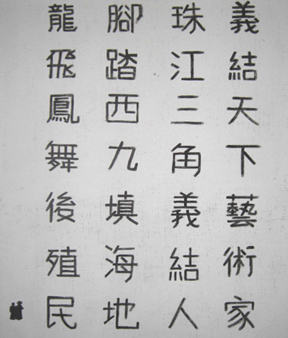 義結天下藝術家
珠江三角義結人
腳踏西九填海地
龍飛鳳舞後殖民